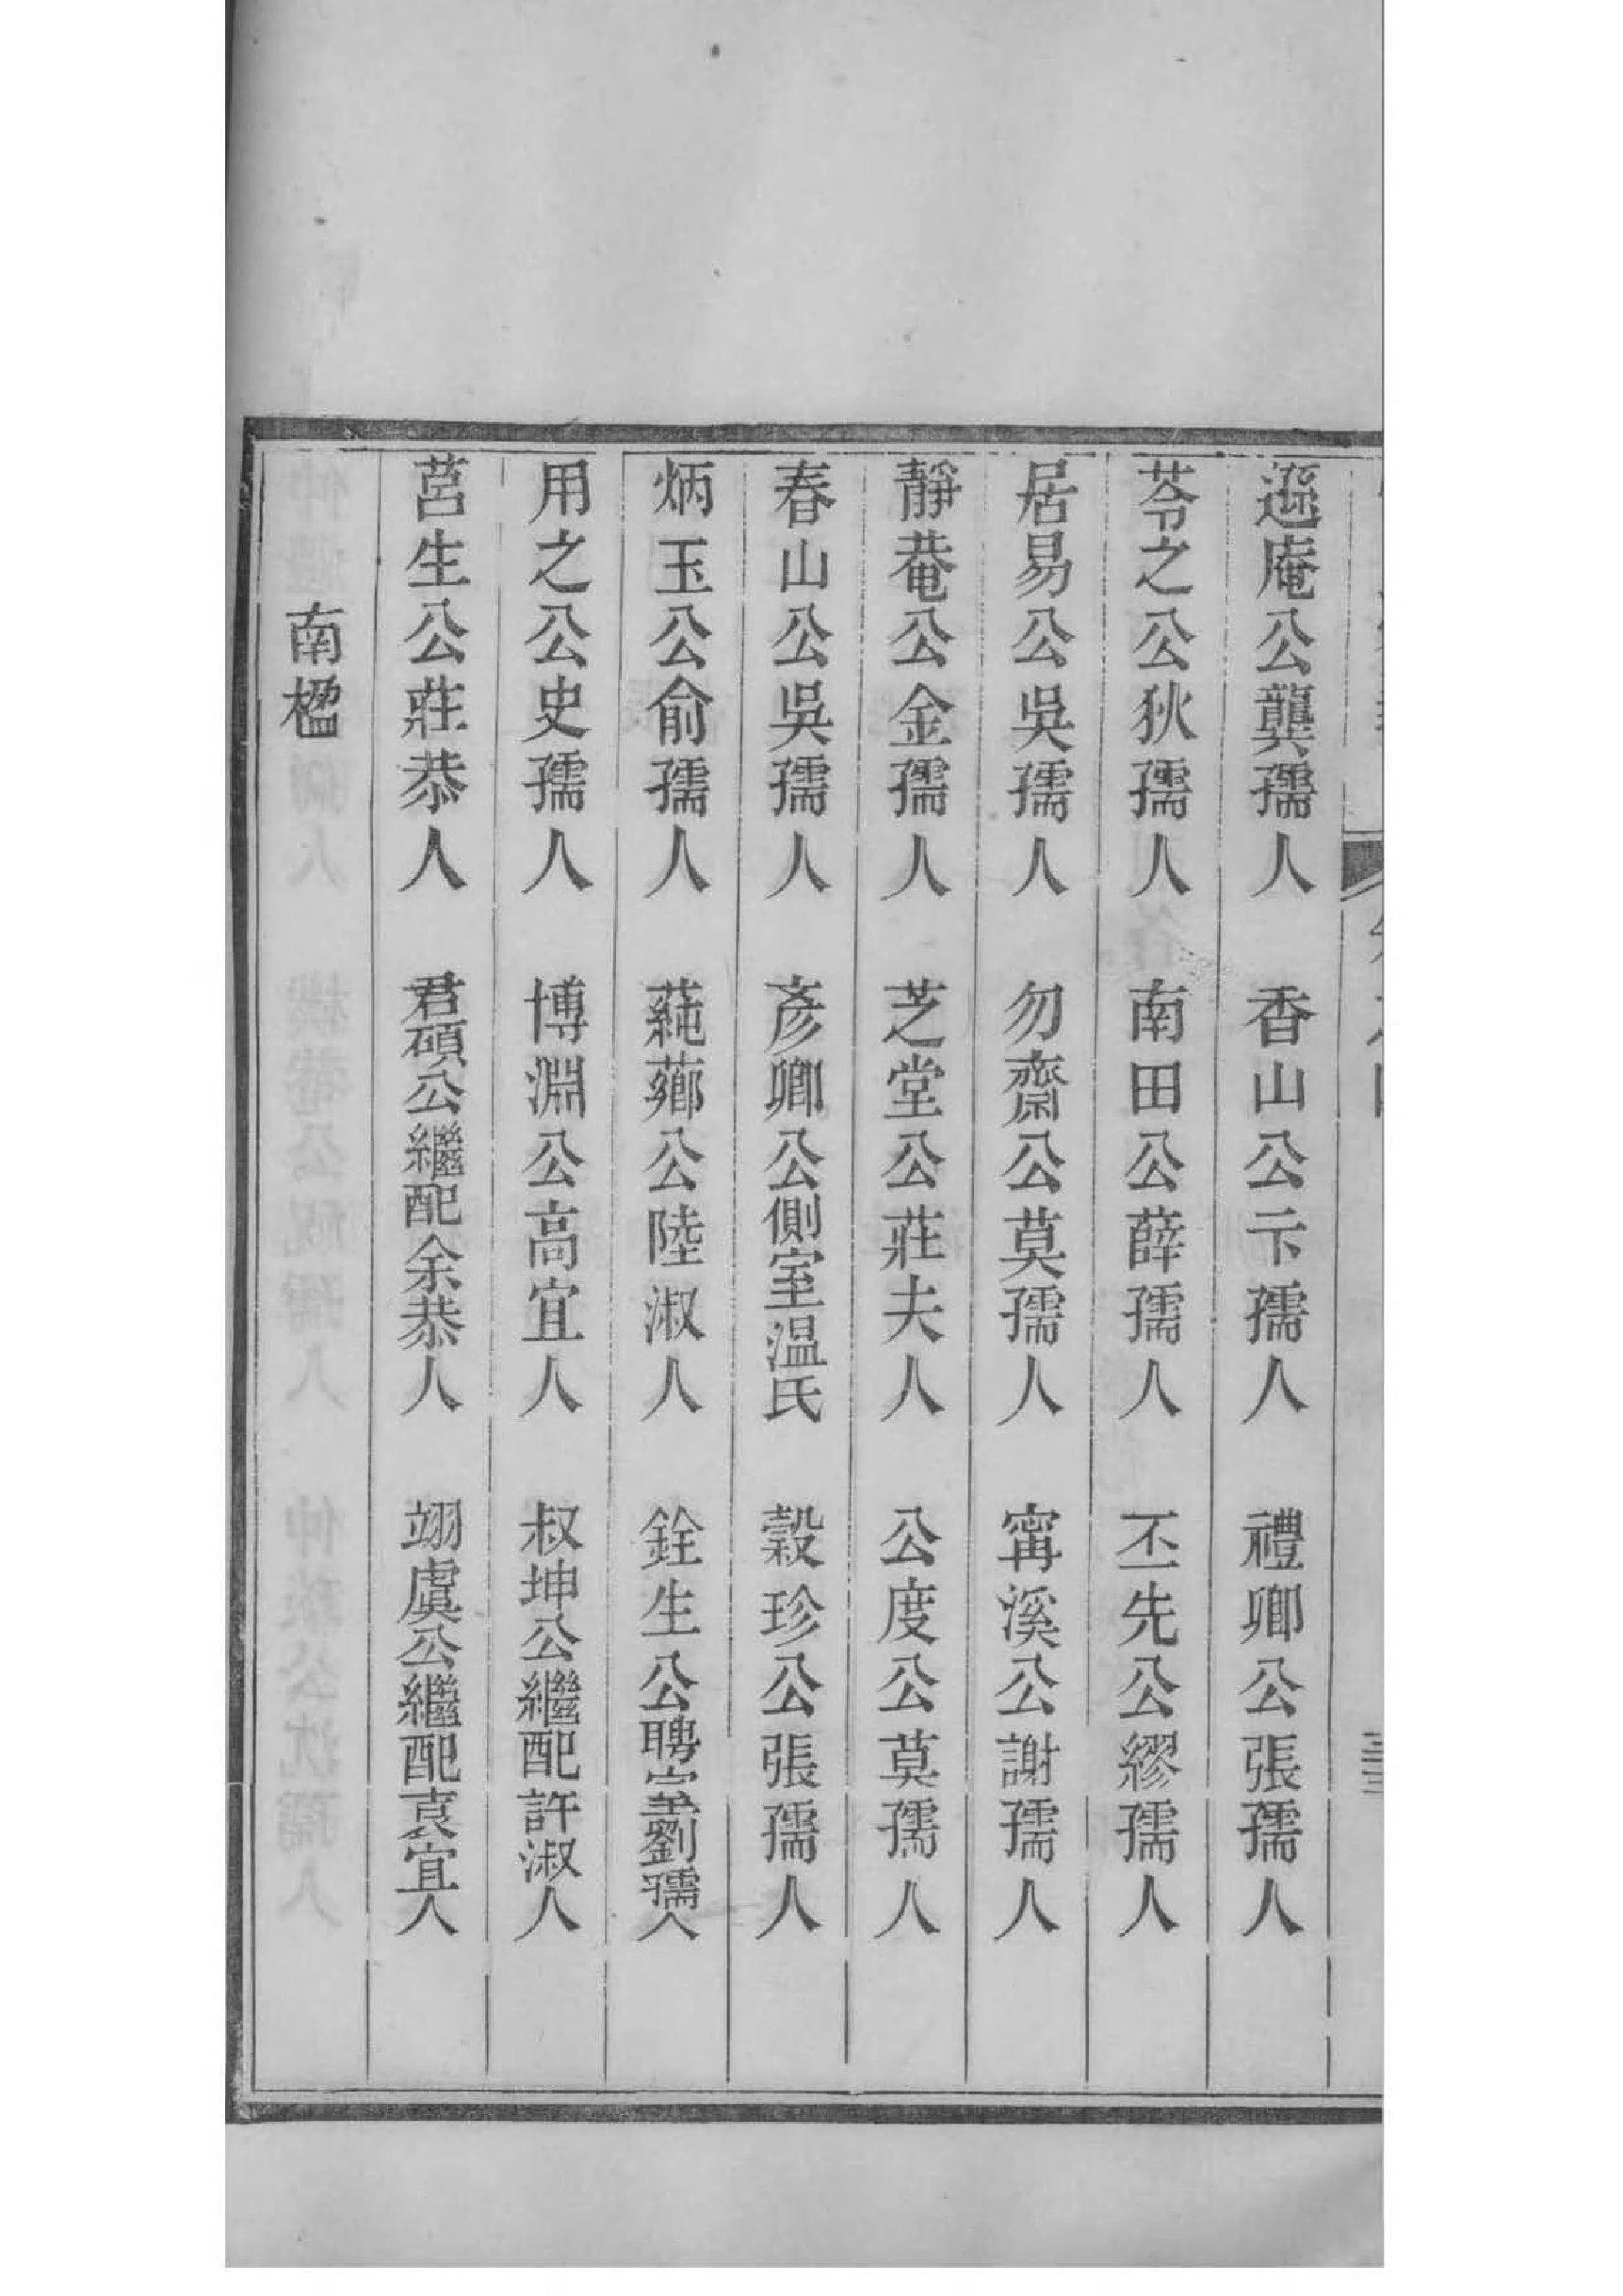 遜庵公龔孺人　香山公卞孺人　禮卿公張孺人
苓之公狄孺人　南田公薛孺人　丕先公繆孺人
居易公吳孺人　勿齋公莫孺人　甯溪公謝孺人
靜菴公金孺人　芝堂公莊夫人　公度公莫孺人
春山公吳孺人　彥卿公側室温氏　榖珍公張孺人
炳玉公俞孺人　蒓薌公陸淑人　銓生公聘室劉孺人
用之公史孺人　博淵公高宜人　叔坤公繼配許淑人
莒生公莊恭人　君碩公繼配余恭人　翊虞公繼配袁宜人
南楹